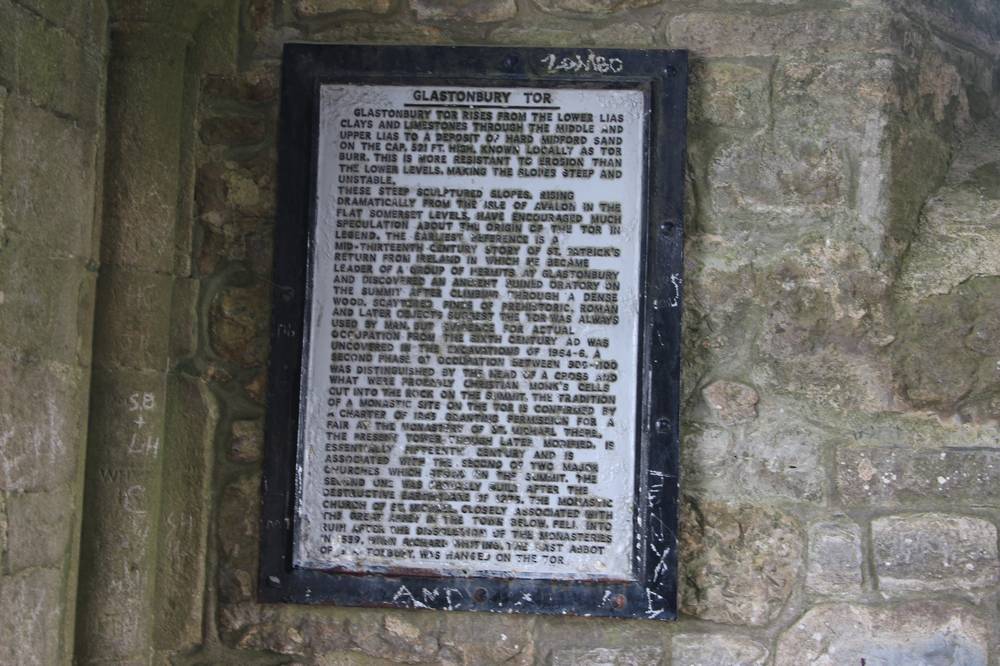 ZOMBO
GLASTONBURY TOR
GLASTONBURY TOR RISES FROM THE LOWER LIAS
CLAYS AND LIMESTONES THROUGH THE MIDDLE AND
UPPER LIAS TO A DEPOSIT OF HARD MIDFORD SAND
ON THE CAP, 521 FT. HIGH. KNOWN LOCALLY AS TOR
BURR. THIS IS MORE RESISTANT TO EROSION THAN
THE LOWER LEVELS, MAKING THE SLOPES STEEP AND
UNSTABLE.
THESE STEEP SCULPTURED SLOPES, RISING
DRAMATICALLY FROM THE ISLE OF AVALON IN THE
FLAT SOMERSET LEVELS, HAVE ENCOURAGED MUCH
SPECULATION ABOUT THE ORIGIN OF THE TOR IN
LEGEND. THE EARLIEST REFERENCE IS A
MID-THIRTEENTH CENTURY STORY OF ST. PATRICK'S
RETURN FROM IRELAND IN WHICH HE BECAME
LEADER OF A GROUP OF HERMITS AT GLASTONBURY
AND DISCOVERED AN ANCIENT RUINED ORATORY ON
THE SUMMIT AFTER CLIMBING THROUGH A DENSE
WOOD. SCATTERED FINDS OF PREHISTORIC, ROMAN
AND LATER OBJECTS SUGGEST THE TOR WAS ALWAYS
USED BY MAN, BUT EVIDENCE FOR ACTUAL
OCCUPATION FROM THE SIXTH CENTURY AD WAS
UNCOVERED IN THE EXCAVATIONS OF 1964-6. A
SECOND PHASE OF OCCUPATION BETWEEN
WAS DISTINGUISHED BY THE HEAD OF A CROSS AND
WHAT WERE PROBABLY CHRISTIAN MONK'S CELLS
CUT INTO THE ROCK ON THE SUMMIT. THE TRADITION
OF A MONASTIC SITE ON THE TOR IS CONFIRMED BY
A CHARTER OF GRANTING PERMISSION FOR A
FAIR AT THE MONASTERY OF ST. MICHAEL THERE.
THE PRESENT TOWER, THOUGH LATER MODIFIED, IS
ESSENTIALLY FIFTEENTH CENTURY AND IS
ASSOCIATED WITH THE SECOND OF TWO MAJOR
CHURCHES WHICH STOOD ON THE SUMMIT. THE
SECOND ONE WAS PROBABLY BUILT AFTER THE
DESTRUCTIVE EARTHQUAKE OF 1275. THE MONASTIC
CHURCH OF ST. MICHAEL, CLOSELY ASSOCIATED WITH
THE GREAT ABBEY IN THE TOWN BELOW, FELL INTO
RUIN AFTER THE DISSOLUTION OF THE MONASTERIES
IN 1539, WHEN RICHARD WHITING, THE LAST ABBOT
OF WAS HANGED ON THE TOR
S.B
+
LH